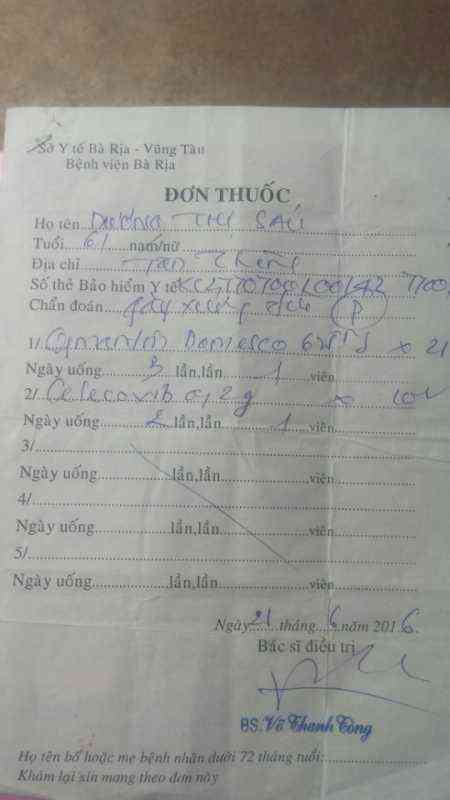 Sở Y tế Bà Rịa - Vũng Tàu
Bệnh viện Bà Rịa
ĐƠN THUỐC
Họ tên Dương Thị Sáu
Tuổi 61 nam/nữ
Địa chỉ
Số thẻ Bảo hiểm Y tế
Chẩn đoán gãy xương (P)
1/ Domesco 625mg x 21
Ngày uống 3 lần,lần 1 viên
2/ Celecoxib 0,2g x 10v
Ngày uống 2 lần,lần 1 viên
3/
Ngày uống lần,lần viên
4/
Ngày uống lần,lần viên
5/
Ngày uống lần,lần viên
Ngày 21 tháng 6 năm 2016
Bác sĩ điều trị
BS. Võ Thanh Tòng
Họ tên bố hoặc mẹ bệnh nhân dưới 72 tháng tuổi:
Khám lại xin mang theo đơn này